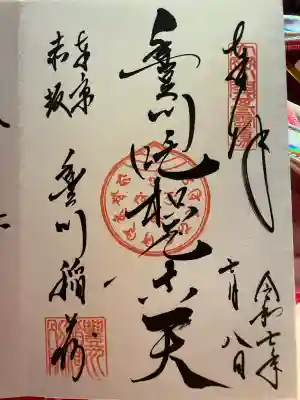 奉拝
令和七年
七月八日
豊川吒枳尼真天
東京
赤坂
豊川稲荷